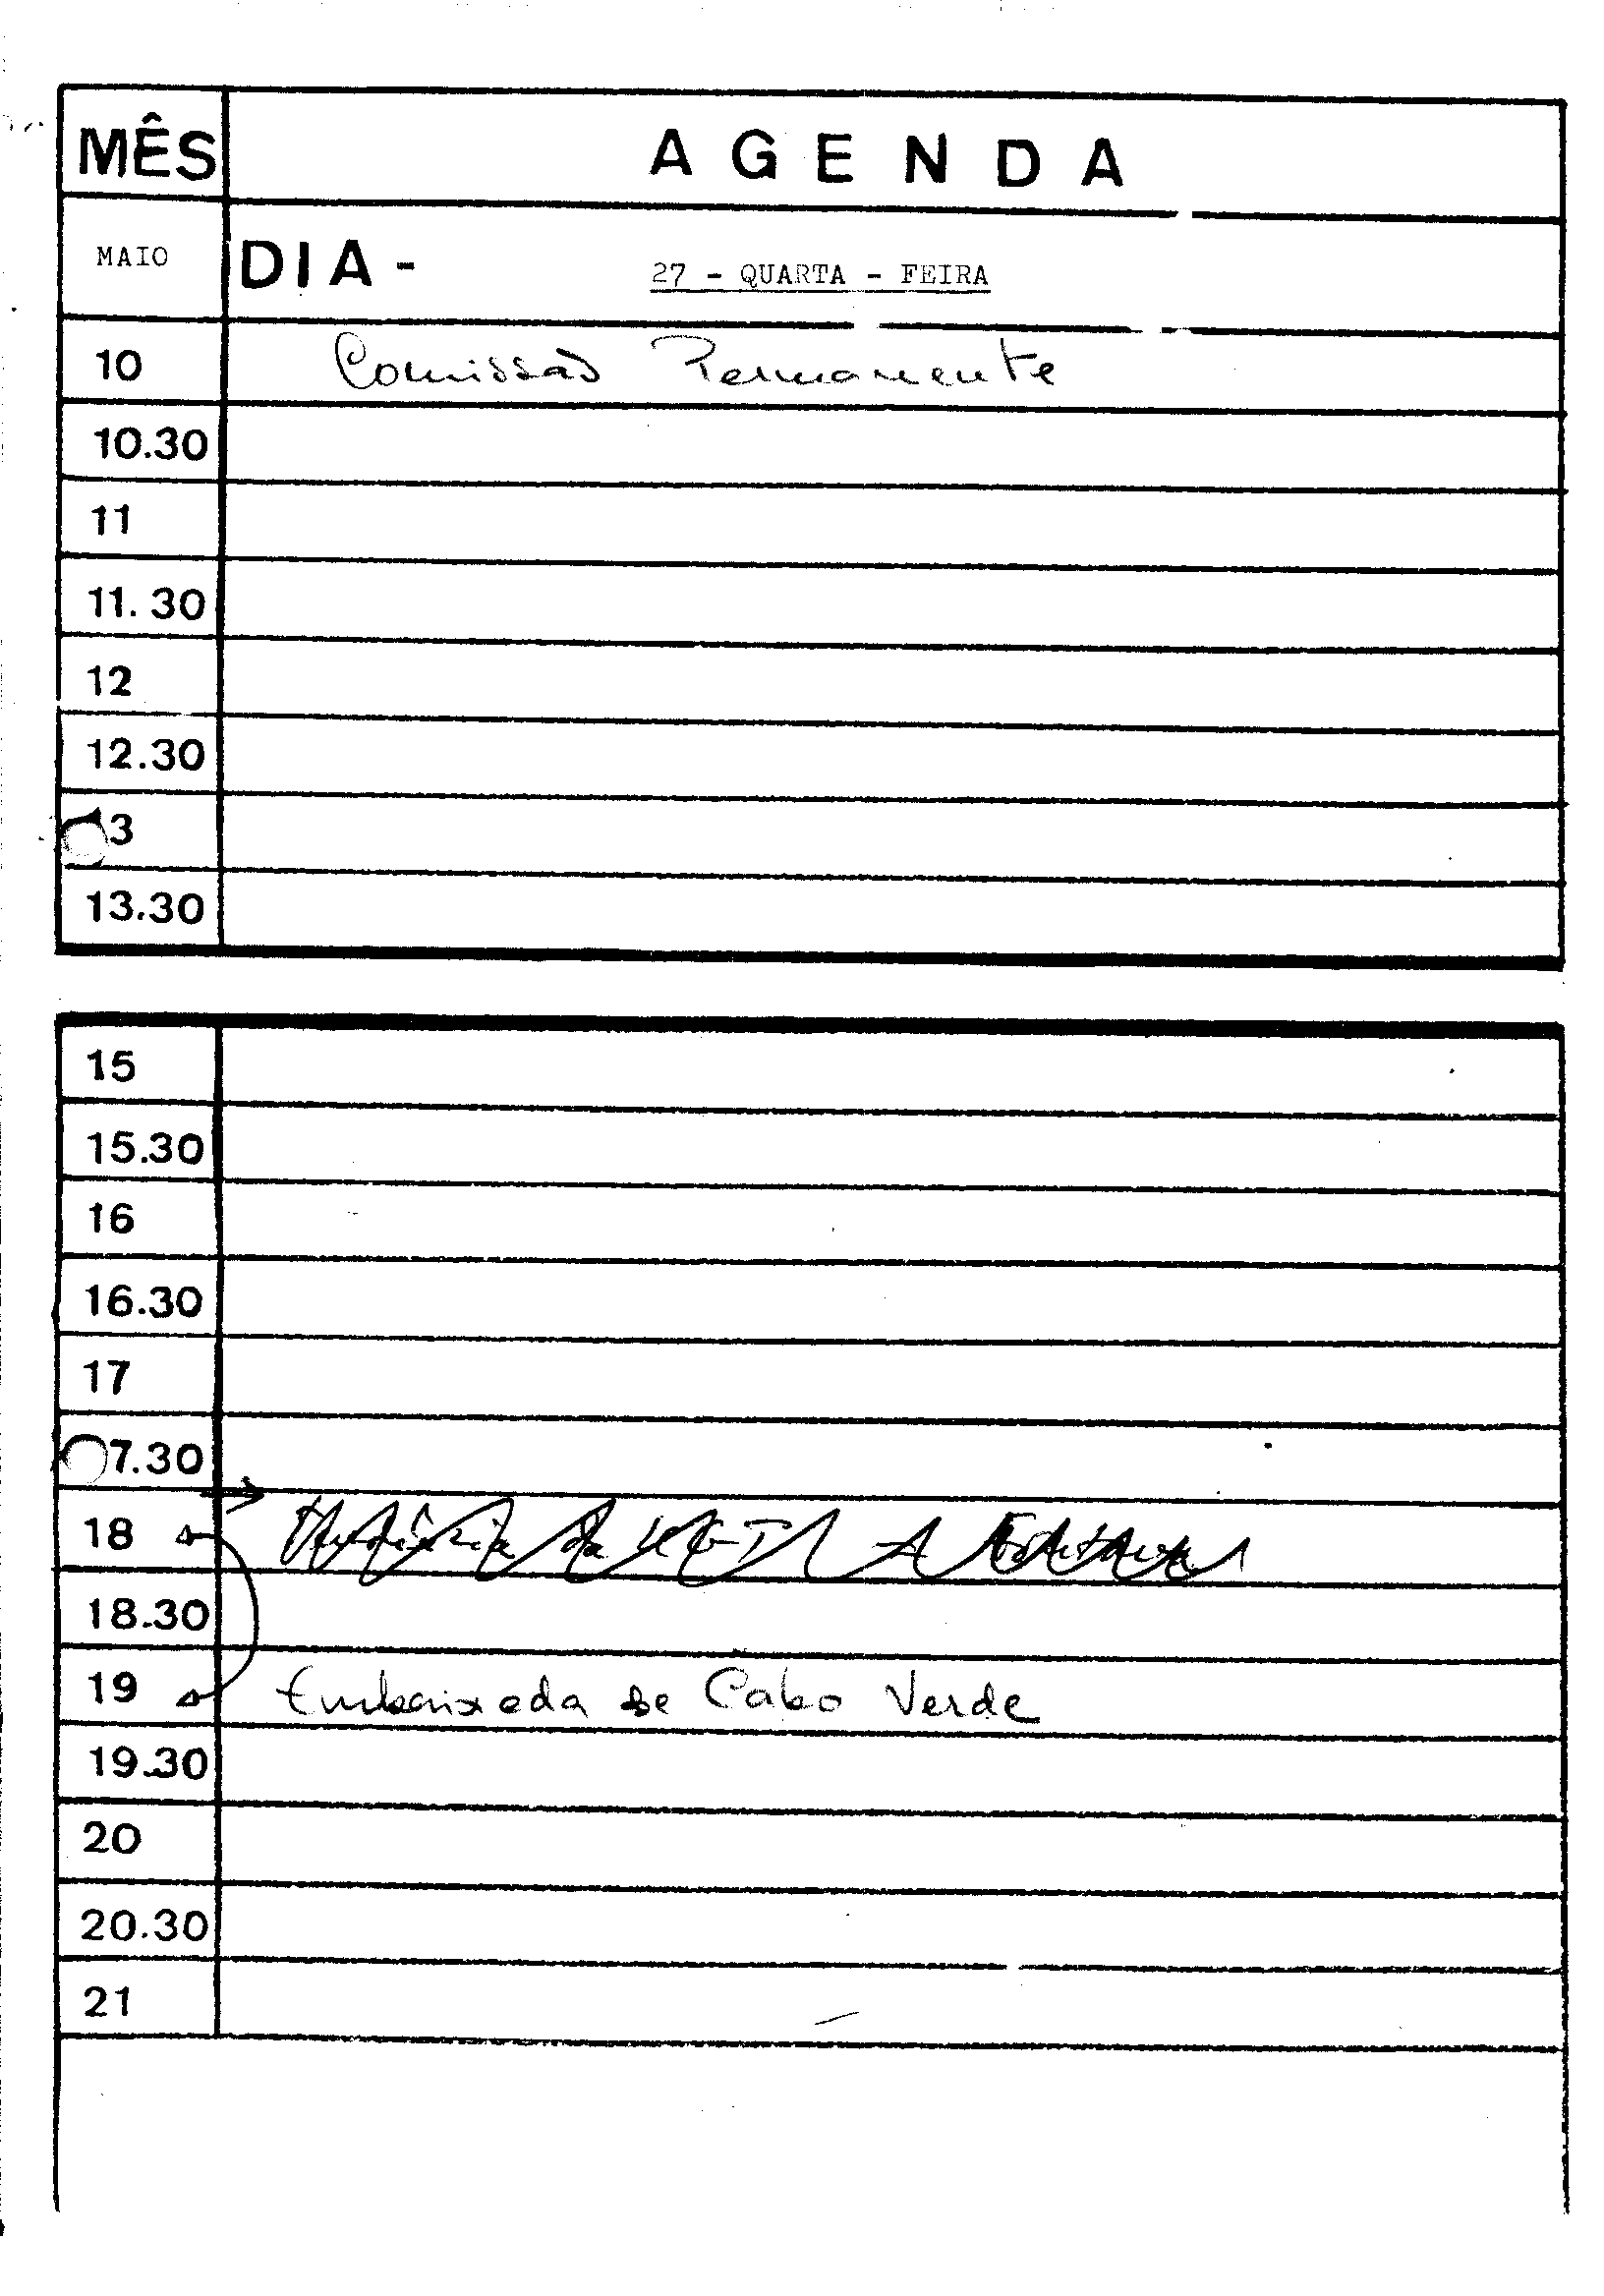 MÊS AGENDA
MAIO DIA - 27 - QUARTA - FEIRA
10 Comissão Permanente
10.30
11
11.30
12
12.30
3
13.30
15
15.30
16
16.30
17
7.30
18 Audiência da UGT
18.30
19 Embaixada de Cabo Verde
19.30
20
20.30
21